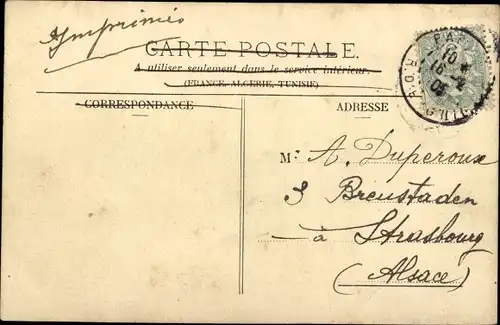 Imprimés
CARTE POSTALE.
A utiliser seulement dans le service intérieur.
(FRANCE, ALGERIE, TUNISIE)
CORRESPONDANCE
ADRESSE
M. A. Duperoux
3 Breustaden
à Strasbourg
(Alsace)
PAR
10
16
05